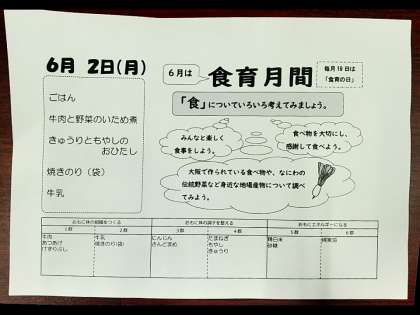 6月 2日(月)
6月は
食育月間
毎月19日は
「食育の日」
「食」についていろいろ考えてみましょう。
ごはん
牛肉と野菜のいため煮
きゅうりともやしの
おひたし
焼きのり(袋)
牛乳
みんなと楽しく
食事をしよう。
食べ物を大切にし、
感謝して食べよう。
大阪で作られている食べ物や、なにわの
伝統野菜など身近な地場産物について調べ
てみよう。
おもに体の組織をつくる
おもに体の調子を整える
おもにエネルギーになる
1群 2群 3群 4群 5群 6群
牛肉
あつあげ
けずりぶし
牛乳
焼きのり(袋)
にんじん
さんどまめ
たまねぎ
もやし
きゅうり
精白米
砂糖
綿実油